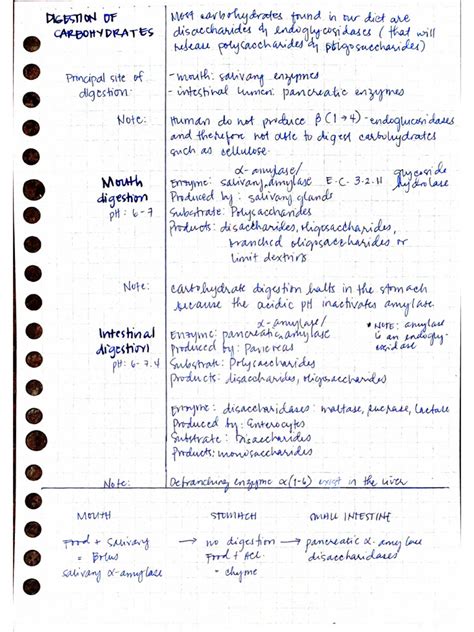 DIGESTION OF CARBOHYDRATES
Most carbohydrates found in our diet are
disaccharides & endoglycosidases (that will
release polysaccharides & oligosaccharides)
Principal site of digestion:
- mouth: salivary enzymes
- intestinal lumen: pancreatic enzymes
Note:
Human do not produce β(1→4)-endoglucosidases
and therefore not able to digest carbohydrates
such as cellulose.
Mouth digestion
pH: 6-7
α-amylase/
Enzyme: salivary amylase E.C. 3.2.11 glycoside hydrolase
Produced by: salivary glands
Substrate: Polysaccharides
Products: disaccharides, oligosaccharides,
branched oligosaccharides or
limit dextrins
Note:
Carbohydrate digestion halts in the stomach
because the acidic pH inactivates amylase.
Intestinal digestion
pH: 6-7.4
α-amylase/
Enzyme: pancreatic amylase
Produced by: Pancreas
Substrate: Polysaccharides
Products: disaccharides, oligosaccharides
* NOTE: amylase
is an endogly-
cosidase
Enzyme: disaccharidases: maltase, sucrase, lactase
Produced by: Enterocytes
Substrate: Disaccharides
Products: monosaccharides
Note:
Debranching enzyme α(1-6) exist in the liver
MOUTH STOMACH SMALL INTESTINE
Food + Salivary → no digestion → pancreatic α-amylase
= Bolus Food + HCl disaccharidases
salivary α-amylase = chyme